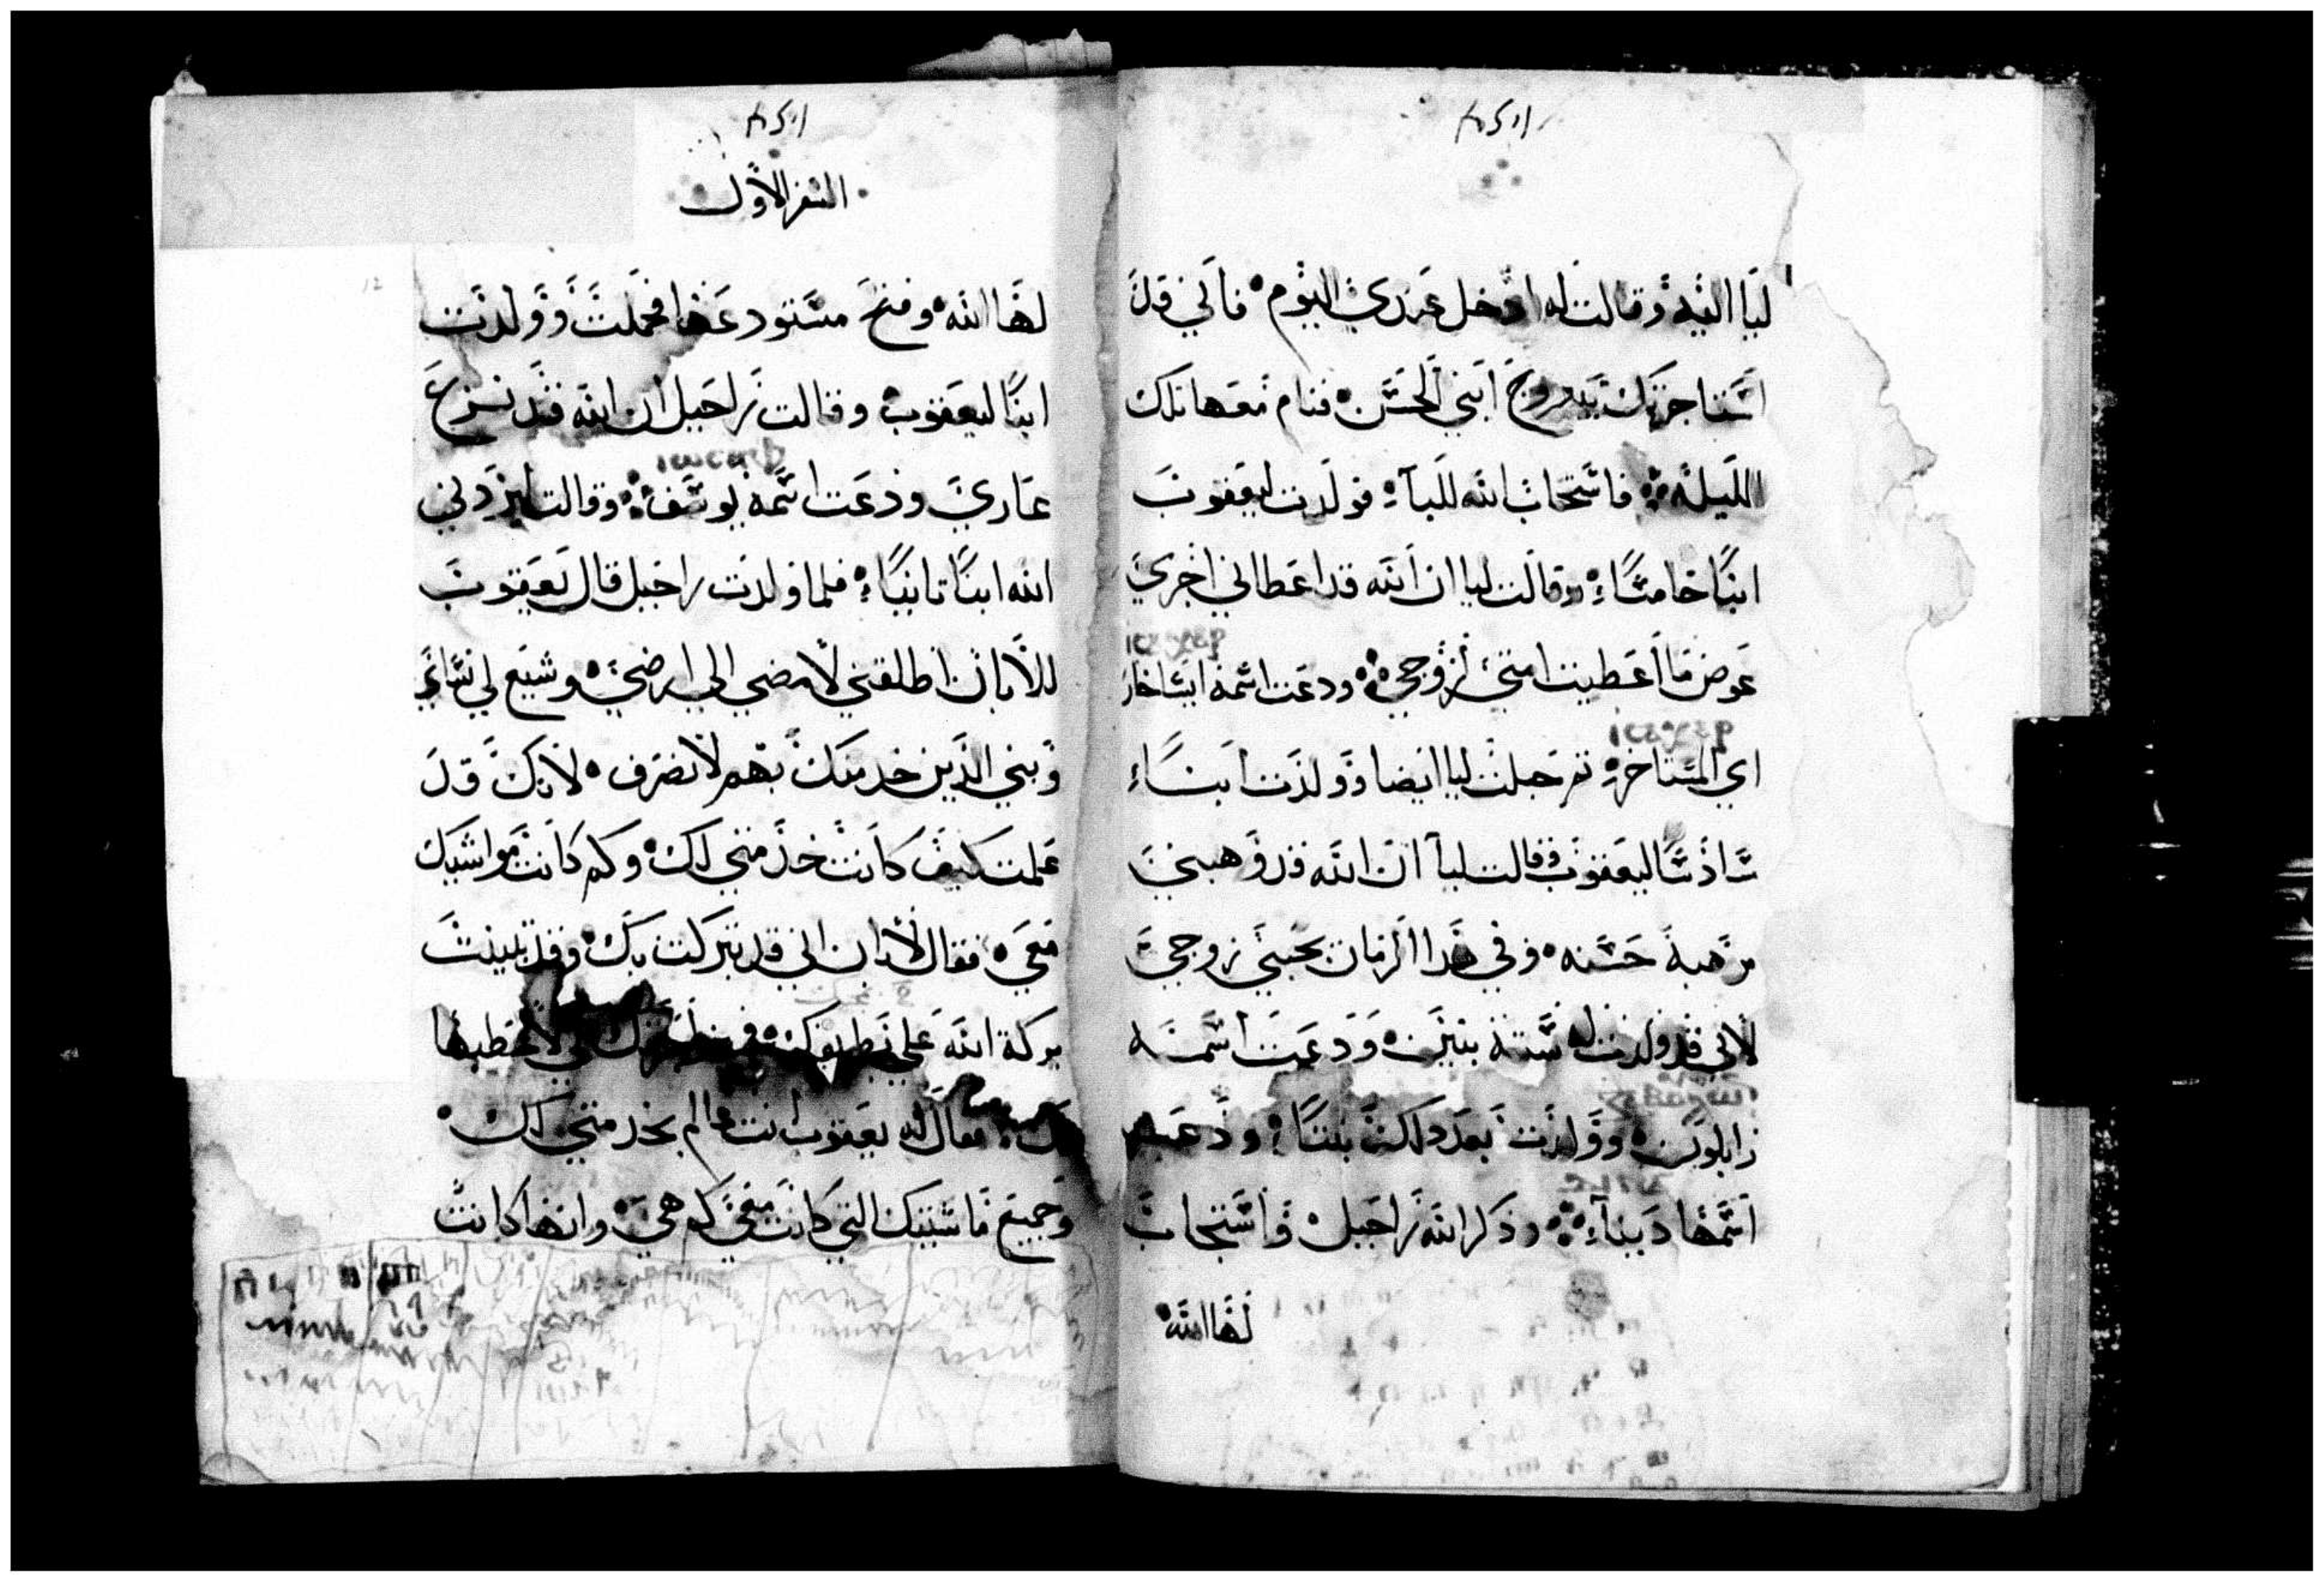 ليا اليه وقالت له ادخل عندي اليوم فاني قد
اشتاجرتك بيبروح ابني الحسن فنام معها تلك
الليله فاستجاب الله لليآ فولدت ليعقوب
ابنًا خامسًا وقالت ليا ان الله قد اعطاني اجري
عوض ما اعطيت امتي لزوجي ودعت اسمه ايساخار
اي المستاجره ثم حبلت ليا ايضا وولدت ابنًا
سادسًا ليعقوب فقالت ليآ ان الله قد وهبني
موهبة حسنه وفي هذا الزمان يحبني زوجي
لاني قد ولدت له ستة بنين ودعت اسمه
زابلون وولدت بعد ذلك بنتًا ودعت
اسمها دينآ وذكر الله راحيل واستجاب
لها الله
السفر الاول
لها الله وفتح مستودعها فحملت وولدت
ابنًا ليعقوب وقالت راحيل ان الله قد نزع
عاري ودعت اسمه يوسف وقالت ليزدني
الله ابنًا ثانيًا فلما ولدت راحيل قال يعقوب
للابان اطلقني لامضي الي ارضي وشيع لي نسائي
وبني الذين خدمتك بهم لانصرف لانك قد
علمت كيف كانت خدمتي لك وكم كانت مواشيك
معي فقال لابان اني قد تبركت بك وقد تبينت
بركة الله علي لاعطيها
لك فقال له يعقوب انت عالم بخدمتي لك
وجميع ماشيتك التي كانت معي كم هي وانها كانت